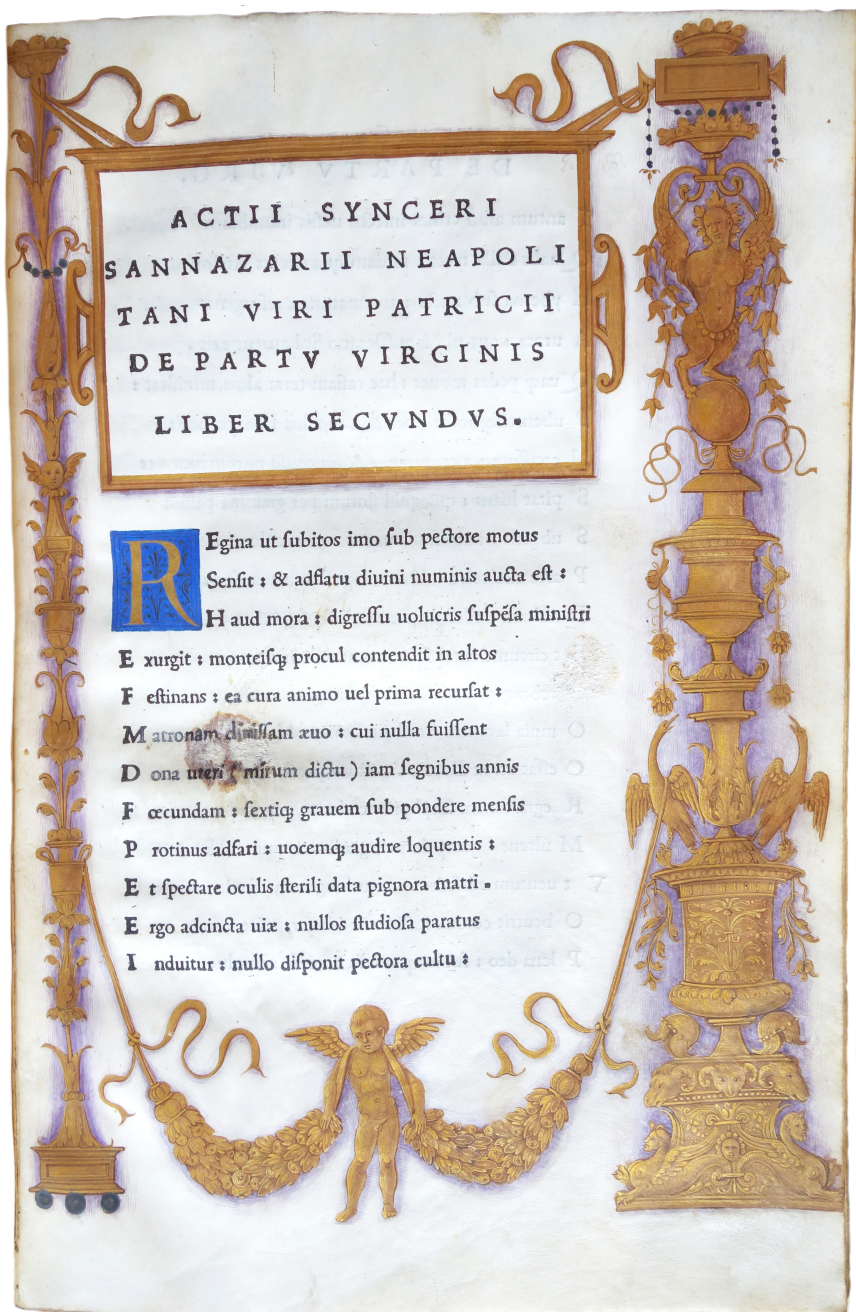 ACTII SYNCERI
SANNAZARII NEAPOLI
TANI VIRI PATRICII
DE PARTV VIRGINIS
LIBER SECVNDVS.
REgina ut ſubitos imo ſub pectore motus
Senſit : & adflatu diuini numinis aucta eſt :
H aud mora : digreſſu uolucris ſuſpẽſa miniſtri
E xurgit : monteiſq; procul contendit in altos
F eſtinans : ea cura animo uel prima recurſat :
M atronam dimiſſam æuo : cui nulla fuiſſent
D ona uteri ( mirum dictu ) iam ſegnibus annis
F œcundam : ſextiq; grauem ſub pondere menſis
P rotinus adfari : uocemq; audire loquentis :
E t ſpectare oculis ſterili data pignora matri .
E rgo adcincta uiæ : nullos ſtudioſa paratus
I nduitur : nullo diſponit pectora cultu :